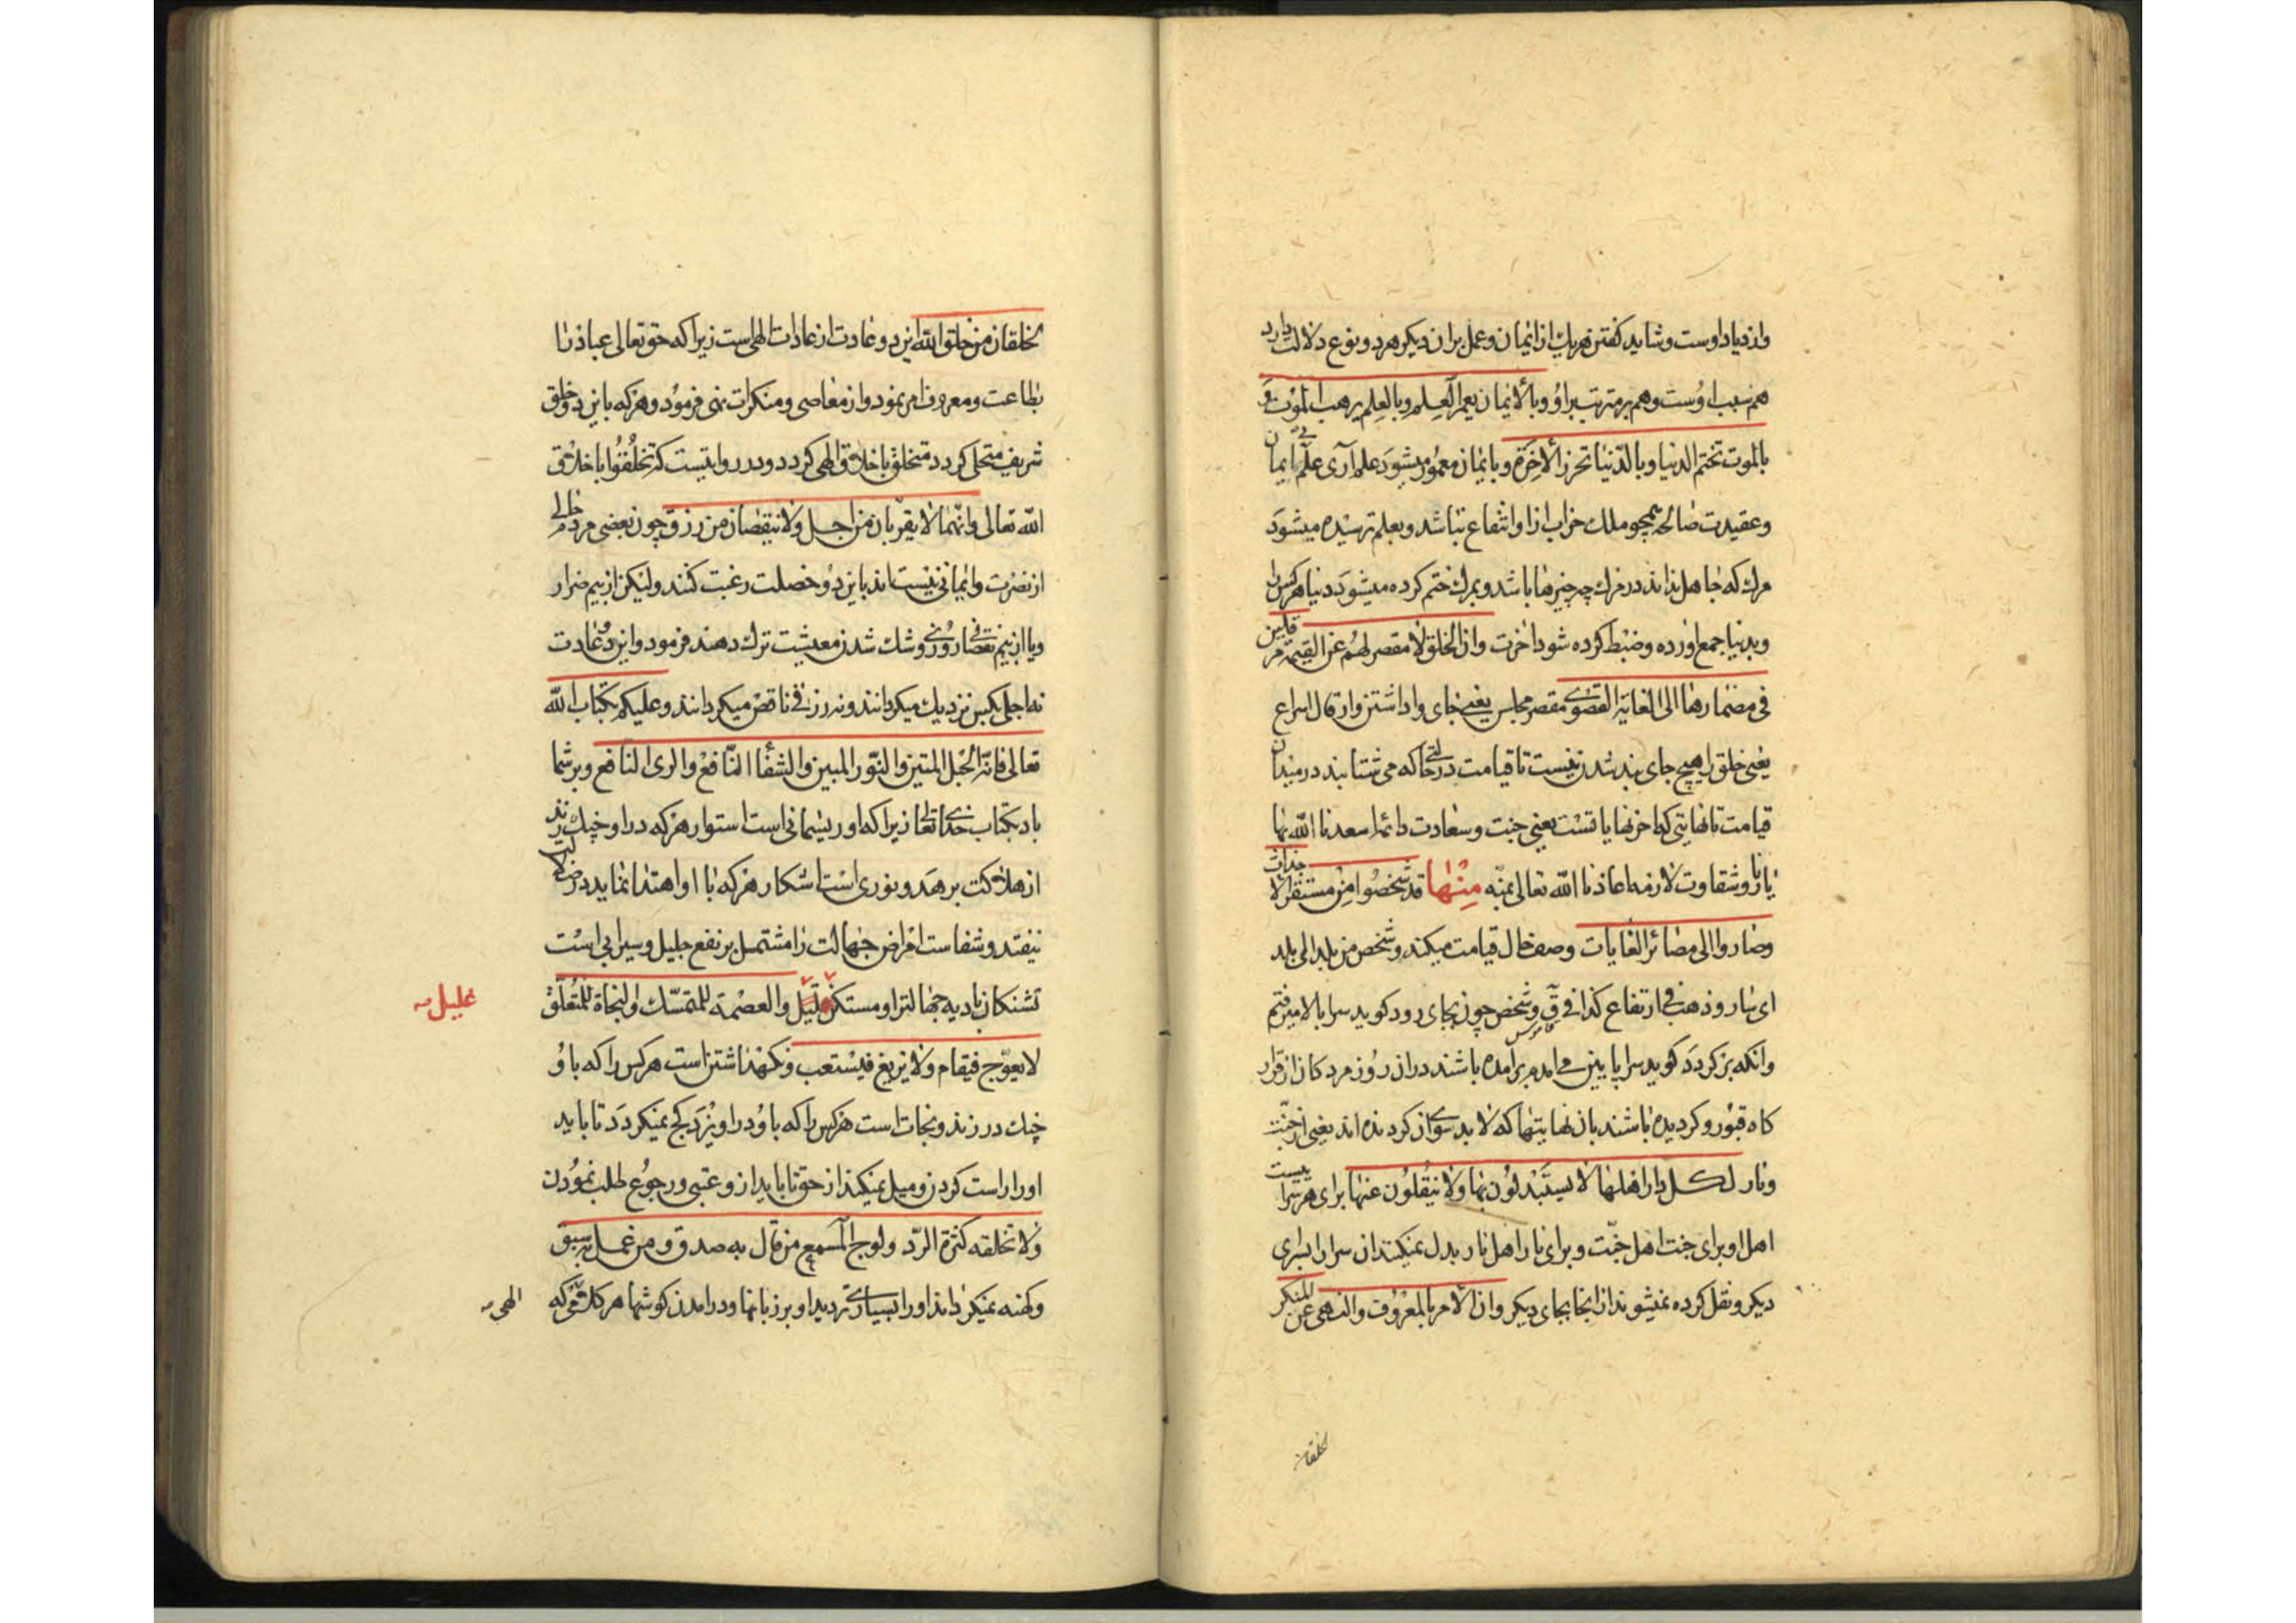 وازدیاد اوست و شاید کفتن هریك از ایمان و عمل بران دیکر هر دو نوع دلالت دارد
هم سبب اوست و هم بر مترتب بر او و بالایمان یعمر العلم و بالعلم یرهب الموت و
بالموت تختم الدنیا و بالدنیا تحرز الاخرة و بایمان معمور میشود علم آری علم بی ایمان
و عقیدت صالحه همچو ملك خراب ازا و انتفاع نباشد و بعلم ترسیده میشود
مرك که جاهل نداند در مرك چه چیزها باشد و بمرك ختم کرده میشود دنیا هر کس را
و بدنیا جمع اورده و ضبط کرده شود اخرت و ان الخلق لا مقصر لهم عن القیمة مرقلین
فی مضمارها الی الغایة القصوی مقصر مجلس یعنی جای واداشتن وارقال اسراع
یعنی خلق را هیچ جای بند شدن نیست تا قیامت در حالتی که می شتابند در میدان
قیامت تا نهایتی که اخر نهایاتست یعنی جنت و سعادت دائما اسعدنا الله بها
یا نار و شقاوت لازمه اعاذنا الله تعالی منه منها قد شخصوا من مستقر الاجداث
و صاروا الی مصائر الغایات وصف حال قیامت میکند و شخص من بلد الی بلد
ای سار و ذهب فی ارتفاع کذا فی ق و شخص چون بجای رود کوید سرا بالا میرفتم
وانکه برکردد کوید سرا پایین می امدم برامده باشند دران روز مردکان از قرار
کاه قبور و کردیده باشند بان نهایتها که لا بد سوی ان کردنده اند یعنی از جنت
و نار لکل دار اهلها لا یستبدلون بها و لا ینقلون عنها برای هر سرا بیست
اهل او برای جنت اهل جنت و برای نار اهل نار بدل نمیکنند ان سرا را بسرای
دیکر و نقل کرده نمیشوند از انجا بجای دیکر و ان الامر بالمعروف والنهی عن المنکر
لخلقان
لخلقان من خلق الله این دو عادت از عادات الهی است زیرا که حق تعالی عباد را
بطاعت و معروف امر نمود و از معاصی و منکرات نهی فرمود و هر که باین دو خلق
شریف متحلی کردد متخلق باخلاق الهی کردد و در روایتیست که تخلقوا باخلاق
الله تعالی وانهما لا یقربان من اجل و لا ینقصان من رزق چون بعضی مردم خالی
از نصرت و ایمانی نیستاند باین دو خصلت رغبت کنند و لیکن از بیم ضرار
و یا از بیم نقصان روزی و شك شدن معیشت ترك دهند فرمود و این دو عادت
نه اجلی بکس نزدیك میکردانند و نه رزقی ناقص میکردانند و علیکم بکتاب الله
تعالی فانه الحبل المتین والنور المبین والشفاء النافع والری الناقع و بر شما
باد بکتاب خدای تعالی زیرا که او ریسمانی است استوار هر که در او چنك زند
از هلاکت برهد و نوری است اشکار هر که با او اهتدا نماید در ضلالت
نیفتد و شفاست امراض جهالت را مشتمل بر نفع جلیل و سیرابی است
تشنکان بادیه جهالترا و مسکن غلیل والعصمة للمتمسك والنجاة للمتعلق
غلیل
لا یعوج فیقام و لا یزیغ فیستعتب و نکهداشتن است هر کس را که باو
چنك در زند و نجات است هر کس را که باو در اویزد کج نمیکردد تا باید
او را راست کردن و میل نمیکند از حق تا باید از و عتبی و رجوع طلب نمودن
و لا تخلقه کثرة الرد و ولوج السمع من قال به صدق و من عمل به سبق
و کهنه نمیکرداند او را بسیاری تردید او بر زبانها و در امدن کوشها هر کلامی که
الهی